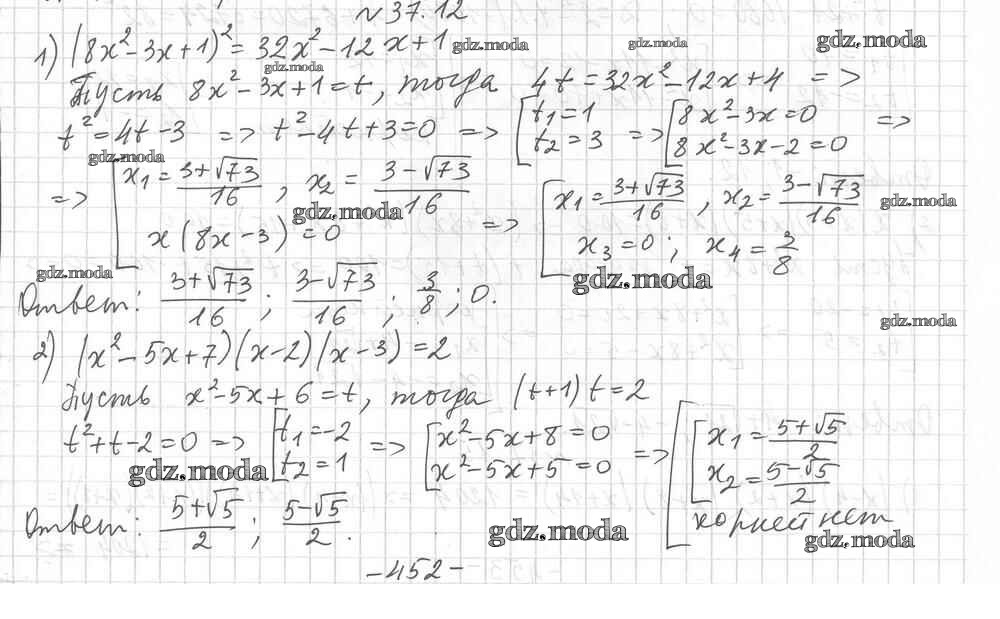 № 37.12
1) (8x² - 3x + 1)² = 32x² - 12x + 1 gdz.moda gdz.moda gdz.moda
gdz.moda
Пусть 8x² - 3x + 1 = t, тогда 4t = 32x² - 12x + 4 =>
t² = 4t - 3 => t² - 4t + 3 = 0 => [t₁ = 1; t₂ = 3 => [8x² - 3x = 0; 8x² - 3x - 2 = 0 =>
gdz.moda
=> [x₁ = (3+√73)/16, x₂ = (3-√73)/16; x(8x - 3) = 0 => [x₁ = (3+√73)/16, x₂ = (3-√73)/16; x₃ = 0; x₄ = 3/8
gdz.moda gdz.moda
gdz.moda gdz.moda
Ответ: (3+√73)/16; (3-√73)/16; 3/8; 0.
gdz.moda
2) (x² - 5x + 7)(x - 2)(x - 3) = 2
Пусть x² - 5x + 6 = t, тогда (t + 1)t = 2
t² + t - 2 = 0 => [t₁ = -2; t₂ = 1 => [x² - 5x + 8 = 0; x² - 5x + 5 = 0 => [[x₁ = (5+√5)/2; x₂ = (5-√5)/2; корней нет
gdz.moda
Ответ: (5+√5)/2; (5-√5)/2.
gdz.moda gdz.moda
- 452 -